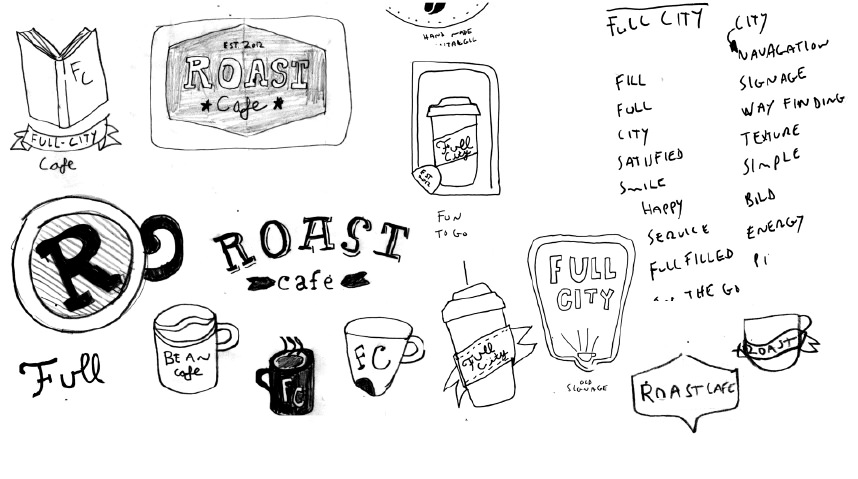 FC
FULL-CITY
Cafe
EST. 2012
ROAST
Cafe
HAND MADE
Full
City
EST.
2012
FUN
TO GO
FULL CITY
FILL
FULL
CITY
SATISFIED
SMILE
HAPPY
SERVICE
FULLFILLED
THE GO
CITY
NAVAGATION
SIGNAGE
WAY FINDING
TEXTURE
SIMPLE
BILD
ENERGY
R
ROAST
cafe
FULL
CITY
OLD
SIGNAGE
Full
BEAN
cafe
FC
FC
Full
City
ROAST CAFE
ROAST